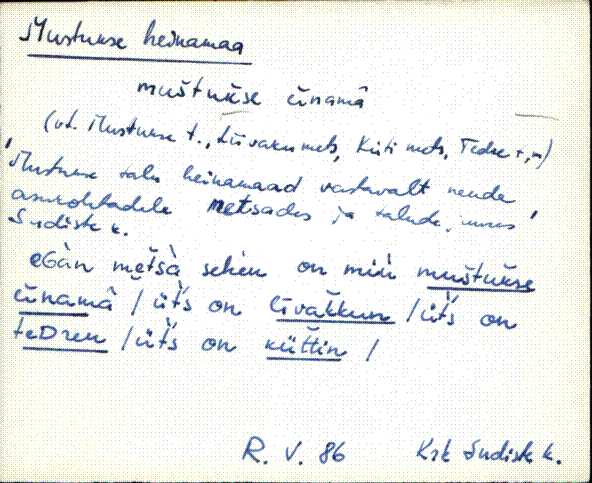 Mustukse heinamaa
muštukse ūnamā
(vt. Mustukse t., Liivaku mets, Küti mets, Tedre t.,
Mustukse talu heinamaad vastavalt nende
asukohtadele metsades ja talude juures
Sudiste k.
eGàn mètsà sehen on miù muštukse
ūnamā / üt's on līvakkun / üt's on
teDren / üt's on küttin /
R. V. 86 Krk Sudiste k.